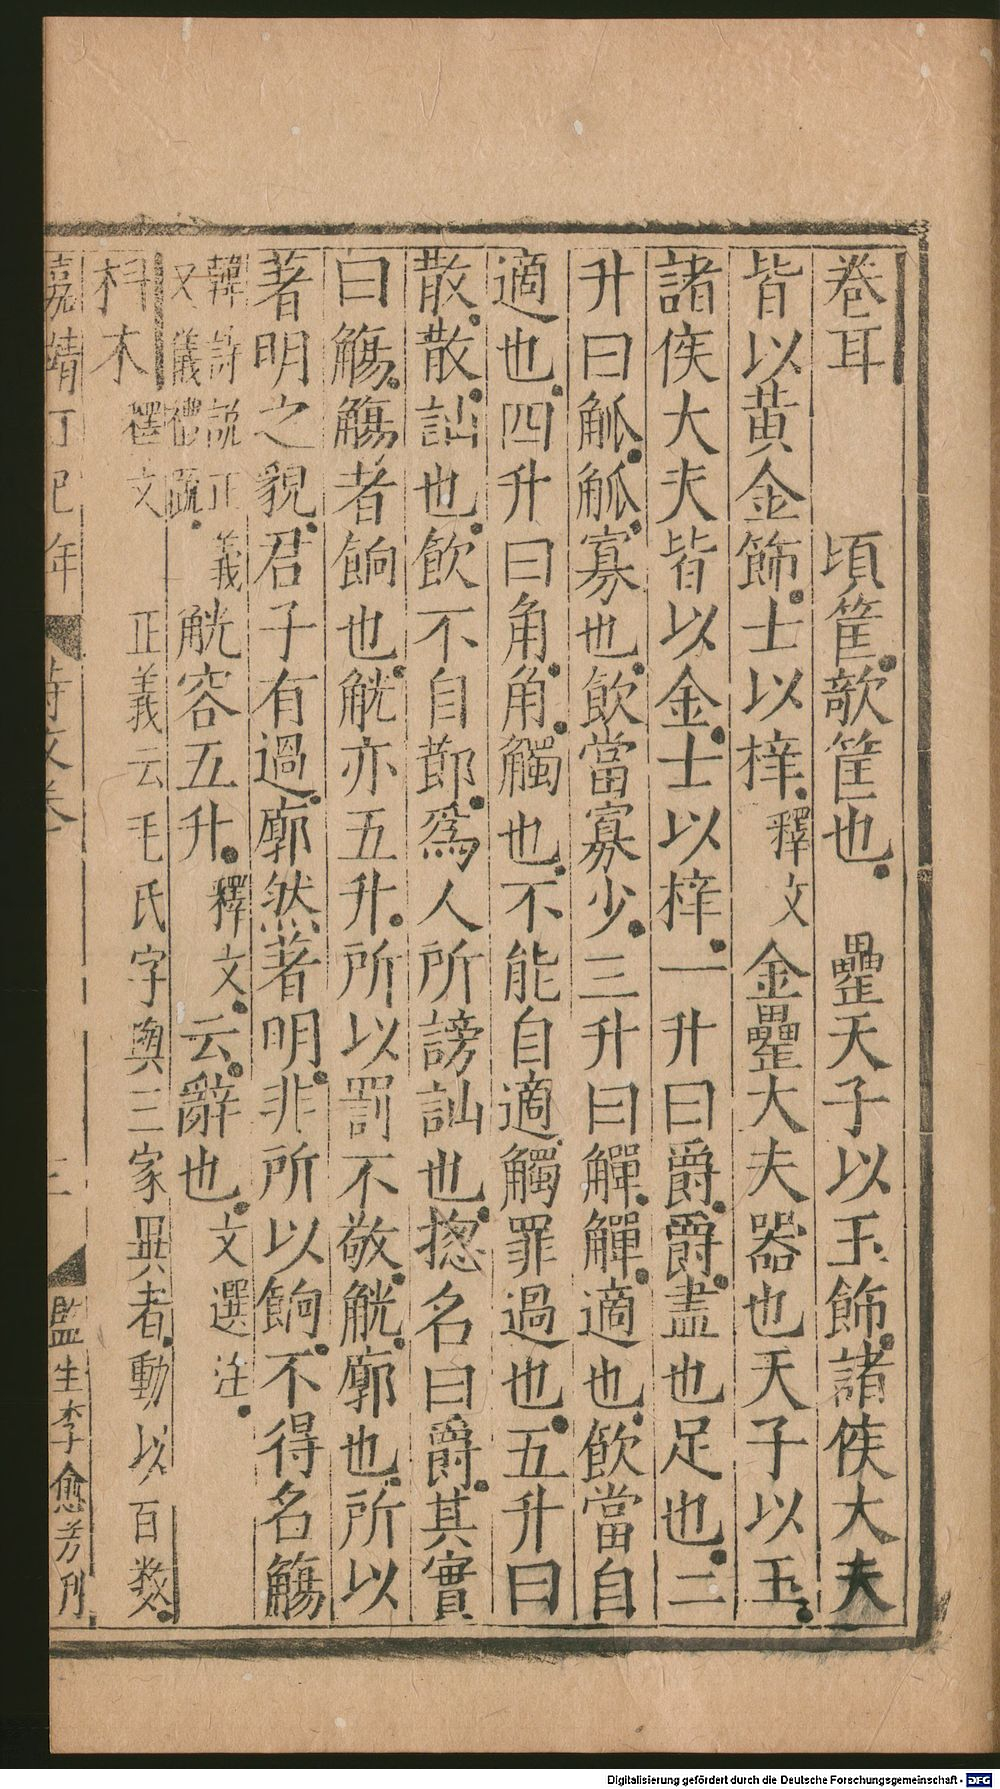 卷耳　頃筐欹筐也　罍天子以玉飾諸侯大夫
皆以黃金飾士以梓釋文金罍大夫器也天子以玉
諸侯大夫皆以金士以梓一升曰爵爵盡也足也二
升曰觚觚寡也飲當寡少三升曰觶觶適也飲當自
適也四升曰角角觸也不能自適觸罪過也五升曰
散散訕也飲不自節爲人所謗訕也揔名曰爵其實
曰觴觴者餉也觥亦五升所以罰不敬觥廓也所以
著明之貌君子有過廓然著明非所以餉不得名觴
韓詩說正義
又儀禮疏
觥容五升釋文云辭也文選注
朻木釋文　正義云毛氏字與三家異者動以百數
嘉靖丁巳年　詩攷卷　三　監生李愈芳刊
Digitalisierung gefördert durch die Deutsche Forschungsgemeinschaft - DFG